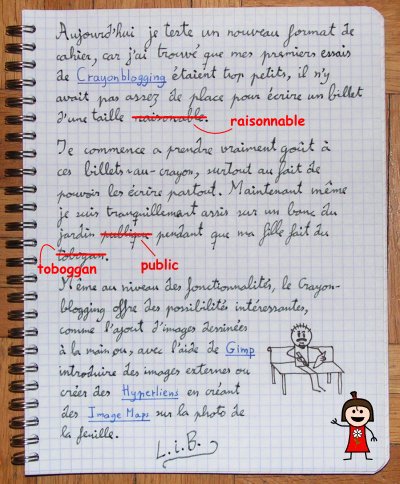 Aujourd'hui je teste un nouveau format de
cahier, car j'ai trouvé que mes premiers essais
de Crayonblogging étaient trop petits, il n'y
avait pas assez de place pour écrire un billet
d'une taille raisonable.
raisonnable
Je commence a prendre vraiment goût à
ces billets-au-crayon, surtout au fait de
pouvoir les écrire partout. Maintenant même
je suis tranquillement assis sur un banc du
jardin publique pendant que ma fille fait du
tobogan.
toboggan
public
Même au niveau des fonctionnalités, le Crayon-
blogging offre des possibilités intéressantes,
comme l'ajout d'images dessinées
à la main ou, avec l'aide de Gimp
introduire des images externes ou
créer des Hyperliens en créant
des Image Maps sur la photo de
la feuille.
L.i.B.